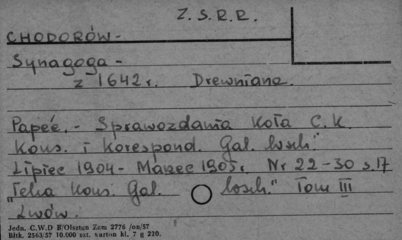 Z. S. R. R.
CHODORÓW -
Synagoga -
z 1642 r. Drewniana.
Papée. - Sprawozdania Koła C. K.
Kons. i Korespond. Gal. wsch."
Lipiec 1904 - Marzec 1905, Nr 22 - 30 s. 17
"Teka Kons. Gal. wsch." Tom III
Lwów.
Jedn. C.W.D B/Olsztyn Zam 2776 /on/57
Bltk. 2563/57 10.000 szt. karton kl. 7 g 220.